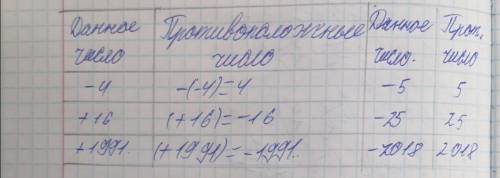 Данное Противоположные Данное Прот.
число число число. число
-4 -(-4)=4 -5 5
+16 (+16)=-16 -25 25
+1991 (+1991)=-1991. -2018 2018